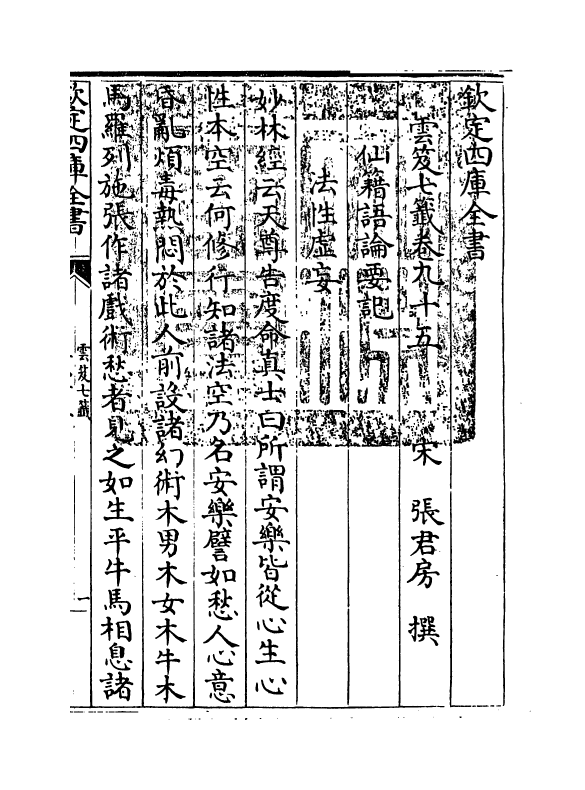 欽定四庫全書
雲笈七籤卷九十五
宋　張君房　撰
仙籍語論要記
法性虛妄
妙林經云天尊告度命真士曰所謂安樂皆從心生心
性本空云何修行知諸法空乃名安樂譬如愁人心意
昏亂煩毒熱悶於此人前設諸幻術木男木女木牛木
馬羅列施張作諸戲術愁者見之如生平牛馬相息諸
欽定四庫全書
雲笈七籤
一